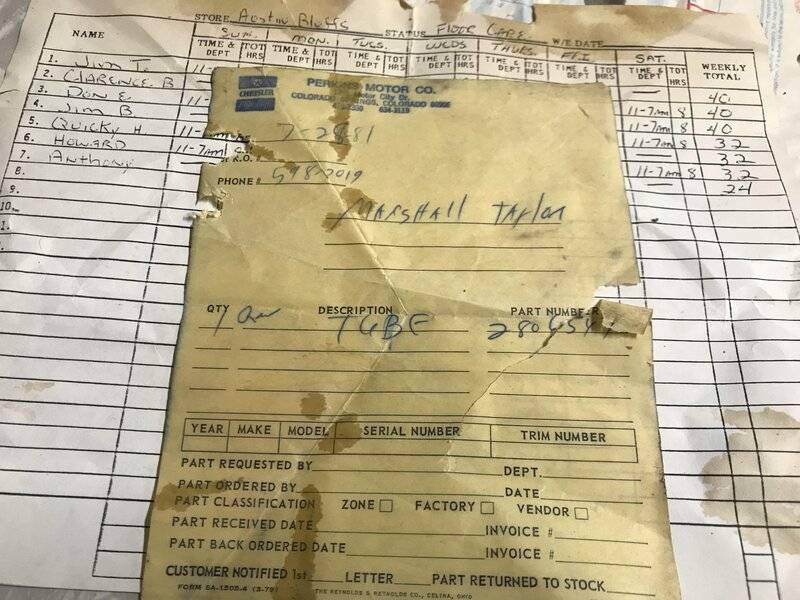 STORE Austin Bluffs STATUS Floor Care W/E DATE
NAME SUN. MON. TUES. WEDS THURS. FRI. SAT. WEEKLY TOTAL
TIME & DEPT TOT HRS TIME & DEPT TOT HRS TIME & DEPT TOT HRS TIME & DEPT TOT HRS TIME & DEPT TOT HRS TIME & DEPT TOT HRS TIME & DEPT TOT HRS
1. Jim T. 11- — 40
2. CLARENCE B 11-7AM 8 40
3. Don E. 11-7AM 8 40
4. Jim B 32
5. Quicky H 11- 11-7AM 8 32
6. HOWARD 11-7AM 11-7AM 8 32
7. Anthony — 24
8.
9.
10.
PERKINS MOTOR CO.
Motor City Dr.
COLORADO SPRINGS, COLORADO
634-3119
CHRYSLER
7-2881
R.O.
PHONE # 598-2019
MARSHAll TAYloR
QTY DESCRIPTION PART NUMBER
TGBE
YEAR MAKE MODEL SERIAL NUMBER TRIM NUMBER
PART REQUESTED BY DEPT.
PART ORDERED BY DATE
PART CLASSIFICATION ZONE FACTORY VENDOR
PART RECEIVED DATE INVOICE #
PART BACK ORDERED DATE INVOICE #
CUSTOMER NOTIFIED 1st LETTER PART RETURNED TO STOCK
FORM SA-1505-4 (3-79) THE REYNOLDS & REYNOLDS CO., CELINA, OHIO